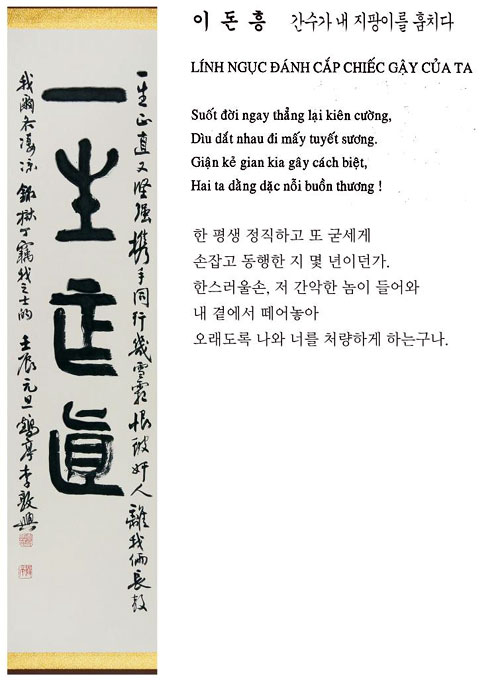 一生正直又堅強携手同行幾雪霜恨彼奸人離我側長教
一生正直
我爾各凄凉 錄獄丁竊我之士的 壬辰元旦鶴亭李敦興
이돈흥 간수가 내 지팡이를 훔치다
LÍNH NGỤC ĐÁNH CẮP CHIẾC GẬY CỦA TA
Suốt đời ngay thẳng lại kiên cường,
Dìu dắt nhau đi mấy tuyết sương.
Giận kẻ gian kia gây cách biệt,
Hai ta dằng dặc nỗi buồn thương !
한 평생 정직하고 또 굳세게
손잡고 동행한 지 몇 년이던가.
한스러울손, 저 간악한 놈이 들어와
내 곁에서 떼어놓아
오래도록 나와 너를 처량하게 하는구나.